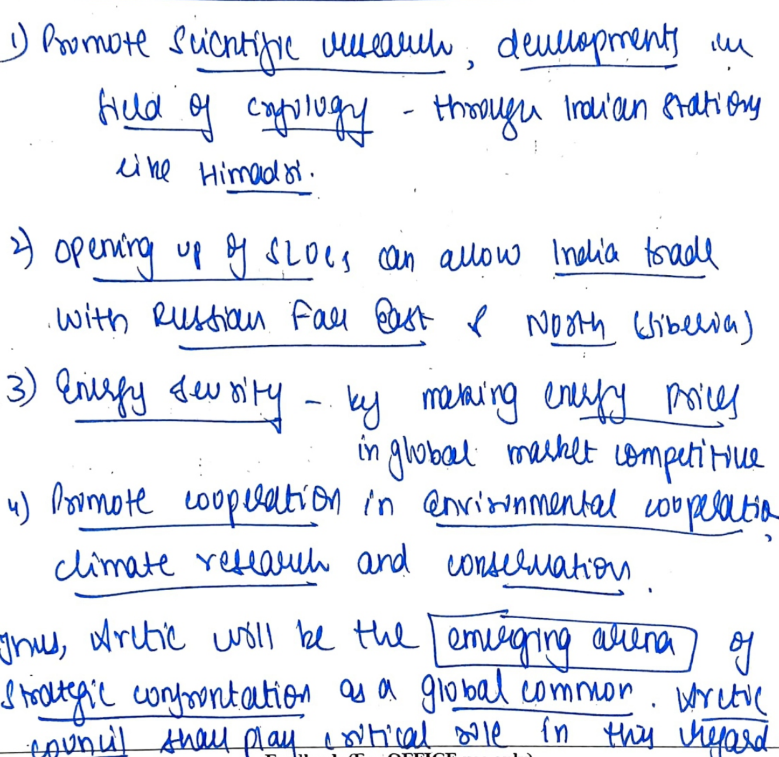 1) Promote Scientific research, developments in
field of cryology - through Indian stations
like Himadri.
2) opening up of SLOCs can allow India trade
with Russian Far East & North (Siberia)
3) Energy security - by making energy prices
in global market competitive
4) Promote cooperation in environmental cooperatio,
climate research and conservation.
Thus, Arctic will be the emerging arena of
Strategic confrontation as a global common. Arctic
council shall play critical role in this regard